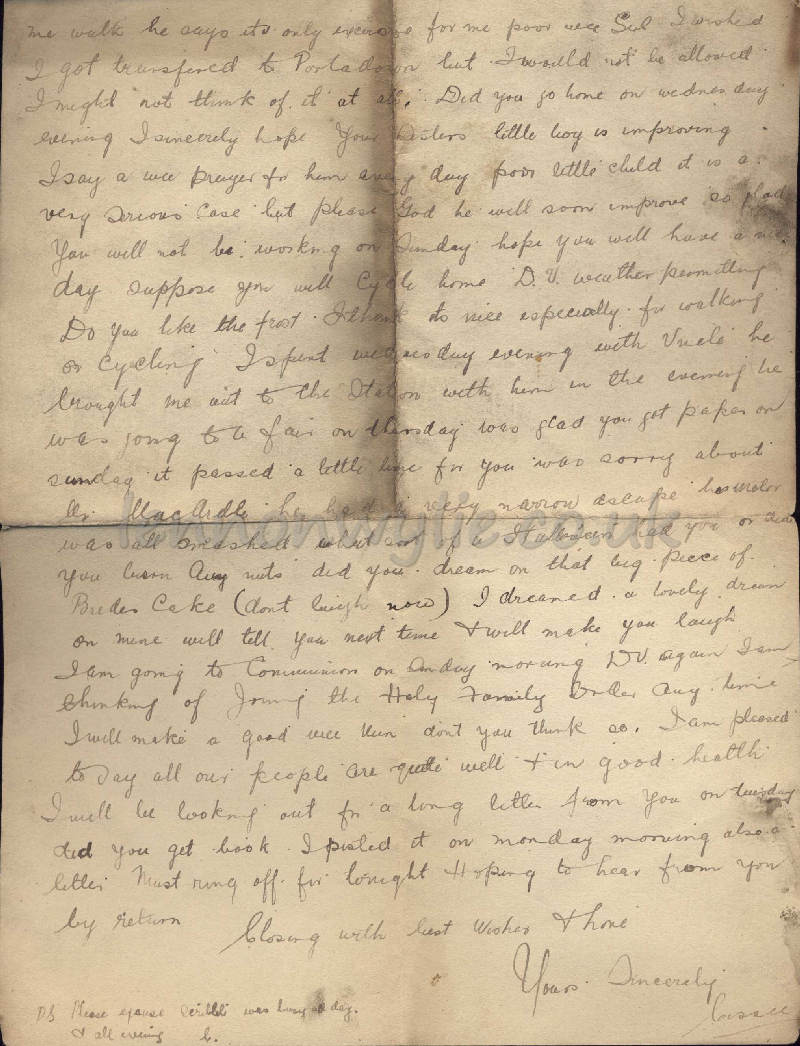 me walk he says its only exercise for me poor wee Sul I wished
I got transfered to Portadown but I would not be allowed
I might not think of it at all. Did you go home on wednesday
evening I sincerely hope Your Sisters little boy is improving
I say a wee prayer for him every day poor little child it is a
very serious case but please God he will soon improve so glad
You will not be working on Sunday hope you will have a nice
day suppose you will Cycle home D.V. weather permitting
Do you like the frost I think its nice especially for walking
or Cycling I spent wednesday evening with Uncle he
brought me out to the Station with him in the evening he
was going to a fair on thursday was glad you got paper on
sunday it passed a little time for you was sorry about
Mr MacArdle he had a very narrow escape his motor
lennonwylie.co.uk
was all smashed what sort of a Halloween had you or did
you burn Any nuts did you dream on that big piece of
Brides Cake (dont laugh now) I dreamed a lovely dream
on mine will tell you next time & will make you laugh
I am going to Communion on Sunday morning D.V. again I am
thinking of Joining the Holy Family Order Any time
I will make a good wee Nun dont you think so. I am pleased
to day all our people are quite well & in good health
I will be looking out for a long letter from You on tuesday
did you get book I posted it on monday morning also a
letter Must ring off for tonight Hoping to hear from you
by return
Closing with best Wishes & love
Yours Sincerely
Cassie
P.S Please excuse scribble was busy all day.
& all evening C.